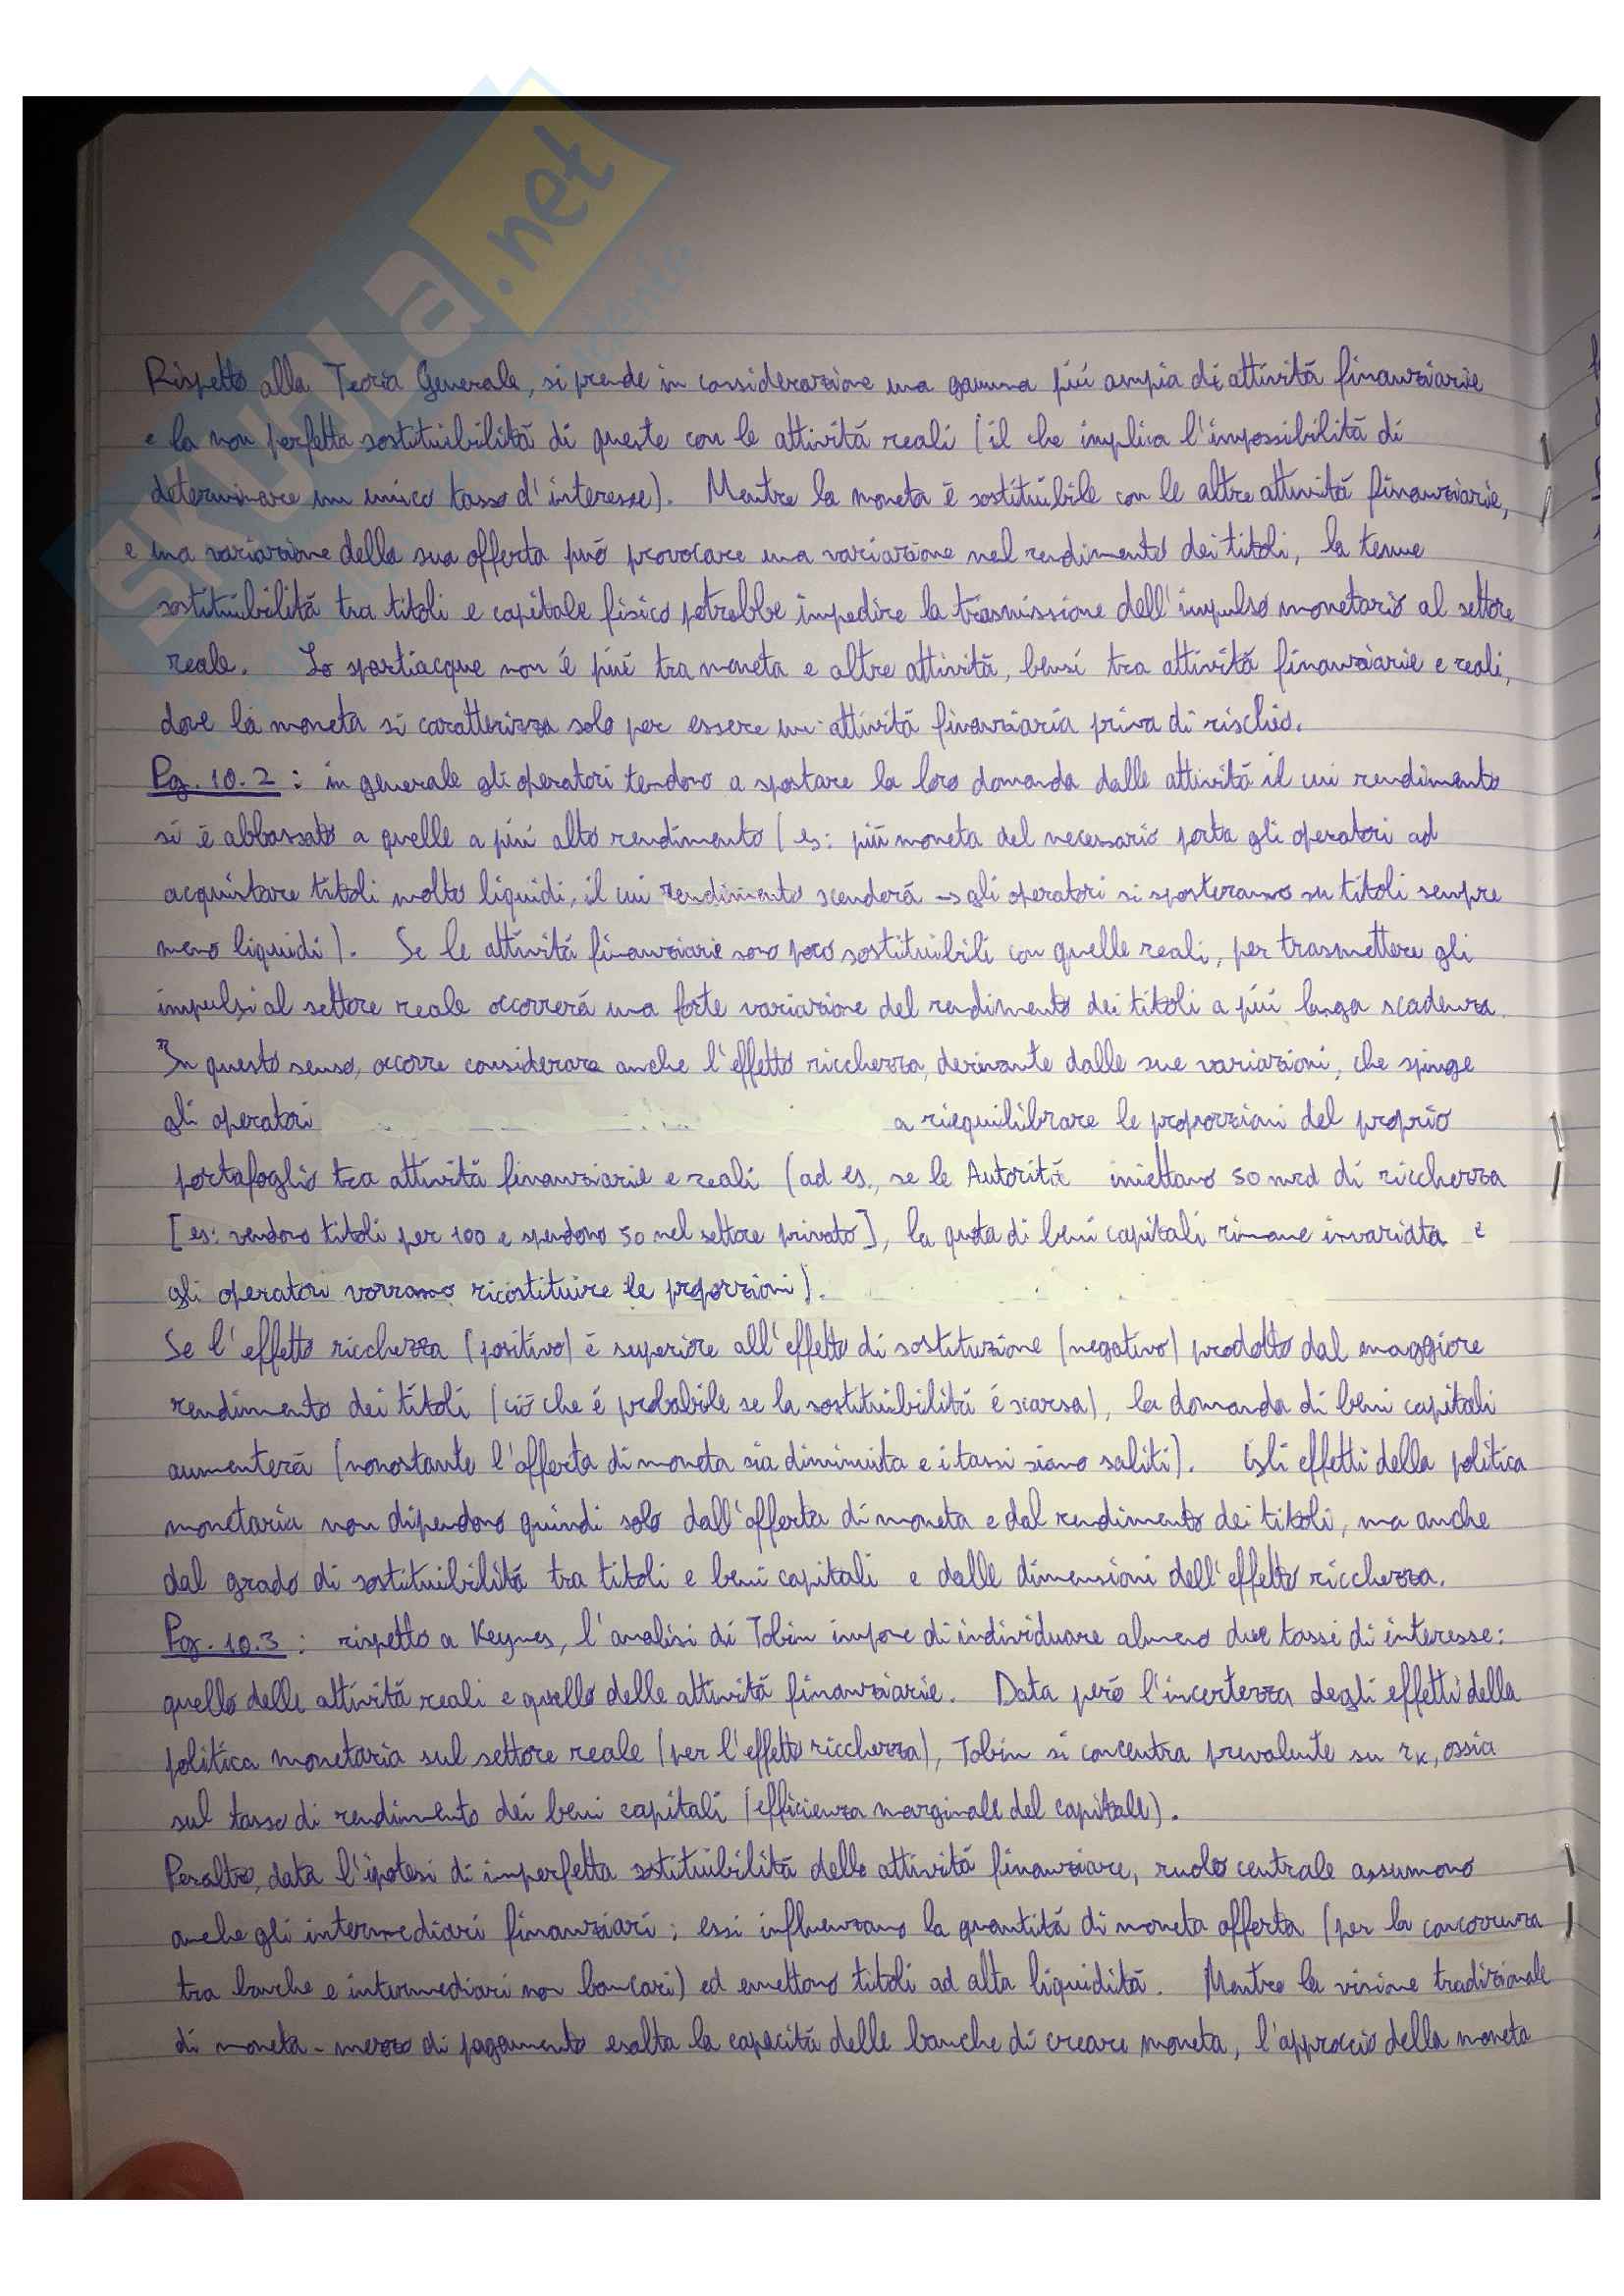 SKUOLA.net
Rispetto alla Teoria Generale, si prende in considerazione una gamma più ampia di attività finanziarie
e la non perfetta sostituibilità di queste con le attività reali (il che implica l'impossibilità di
determinare un unico tasso d'interesse). Mentre la moneta è sostituibile con le altre attività finanziarie,
e una variazione della sua offerta può provocare una variazione nel rendimento dei titoli, la tenue
sostituibilità tra titoli e capitale fisico potrebbe impedire la trasmissione dell'impulso monetario al settore
reale. Lo spartiacque non è più tra moneta e altre attività, bensì tra attività finanziarie e reali,
dove la moneta si caratterizza solo per essere un'attività finanziaria priva di rischio.
Pg. 10.2: in generale gli operatori tendono a spostare la loro domanda dalle attività il cui rendimento
si è abbassato a quelle a più alto rendimento (es: più moneta del necessario porta gli operatori ad
acquistare titoli molto liquidi, il cui rendimento scenderà → gli operatori si sposteranno su titoli sempre
meno liquidi). Se le attività finanziarie sono poco sostituibili con quelle reali, per trasmettere gli
impulsi al settore reale occorrerà una forte variazione del rendimento dei titoli a più lunga scadenza.
In questo senso, occorre considerare anche l'effetto ricchezza, derivante dalle sue variazioni, che spinge
gli operatori a riequilibrare le proporzioni del proprio
portafoglio tra attività finanziarie e reali (ad es., se le Autorità iniettano 50 mrd di ricchezza
[es: vendono titoli per 100 e spendono 50 nel settore privato], la quota di beni capitali rimane invariata e
gli operatori vorranno ricostituire le proporzioni).
Se l'effetto ricchezza (positivo) è superiore all'effetto di sostituzione (negativo) prodotto dal maggiore
rendimento dei titoli (ciò che è probabile se la sostituibilità è scarsa), la domanda di beni capitali
aumenterà (nonostante l'offerta di moneta sia diminuita e i tassi siano saliti). Gli effetti della politica
monetaria non dipendono quindi solo dall'offerta di moneta e dal rendimento dei titoli, ma anche
dal grado di sostituibilità tra titoli e beni capitali e dalle dimensioni dell'effetto ricchezza.
Pg. 10.3: rispetto a Keynes, l'analisi di Tobin impone di individuare almeno due tassi di interesse:
quello delle attività reali e quello delle attività finanziarie. Data però l'incertezza degli effetti della
politica monetaria sul settore reale (per l'effetto ricchezza), Tobin si concentra prevalente su rK, ossia
sul tasso di rendimento dei beni capitali (efficienza marginale del capitale).
Peraltro, data l'ipotesi di imperfetta sostituibilità delle attività finanziare, ruolo centrale assumono
anche gli intermediari finanziari; essi influenzano la quantità di moneta offerta (per la concorrenza
tra banche e intermediari non bancari) ed emettono titoli ad alta liquidità. Mentre la visione tradizionale
di moneta-mezzo di pagamento esalta la capacità delle banche di creare moneta, l'approccio della moneta